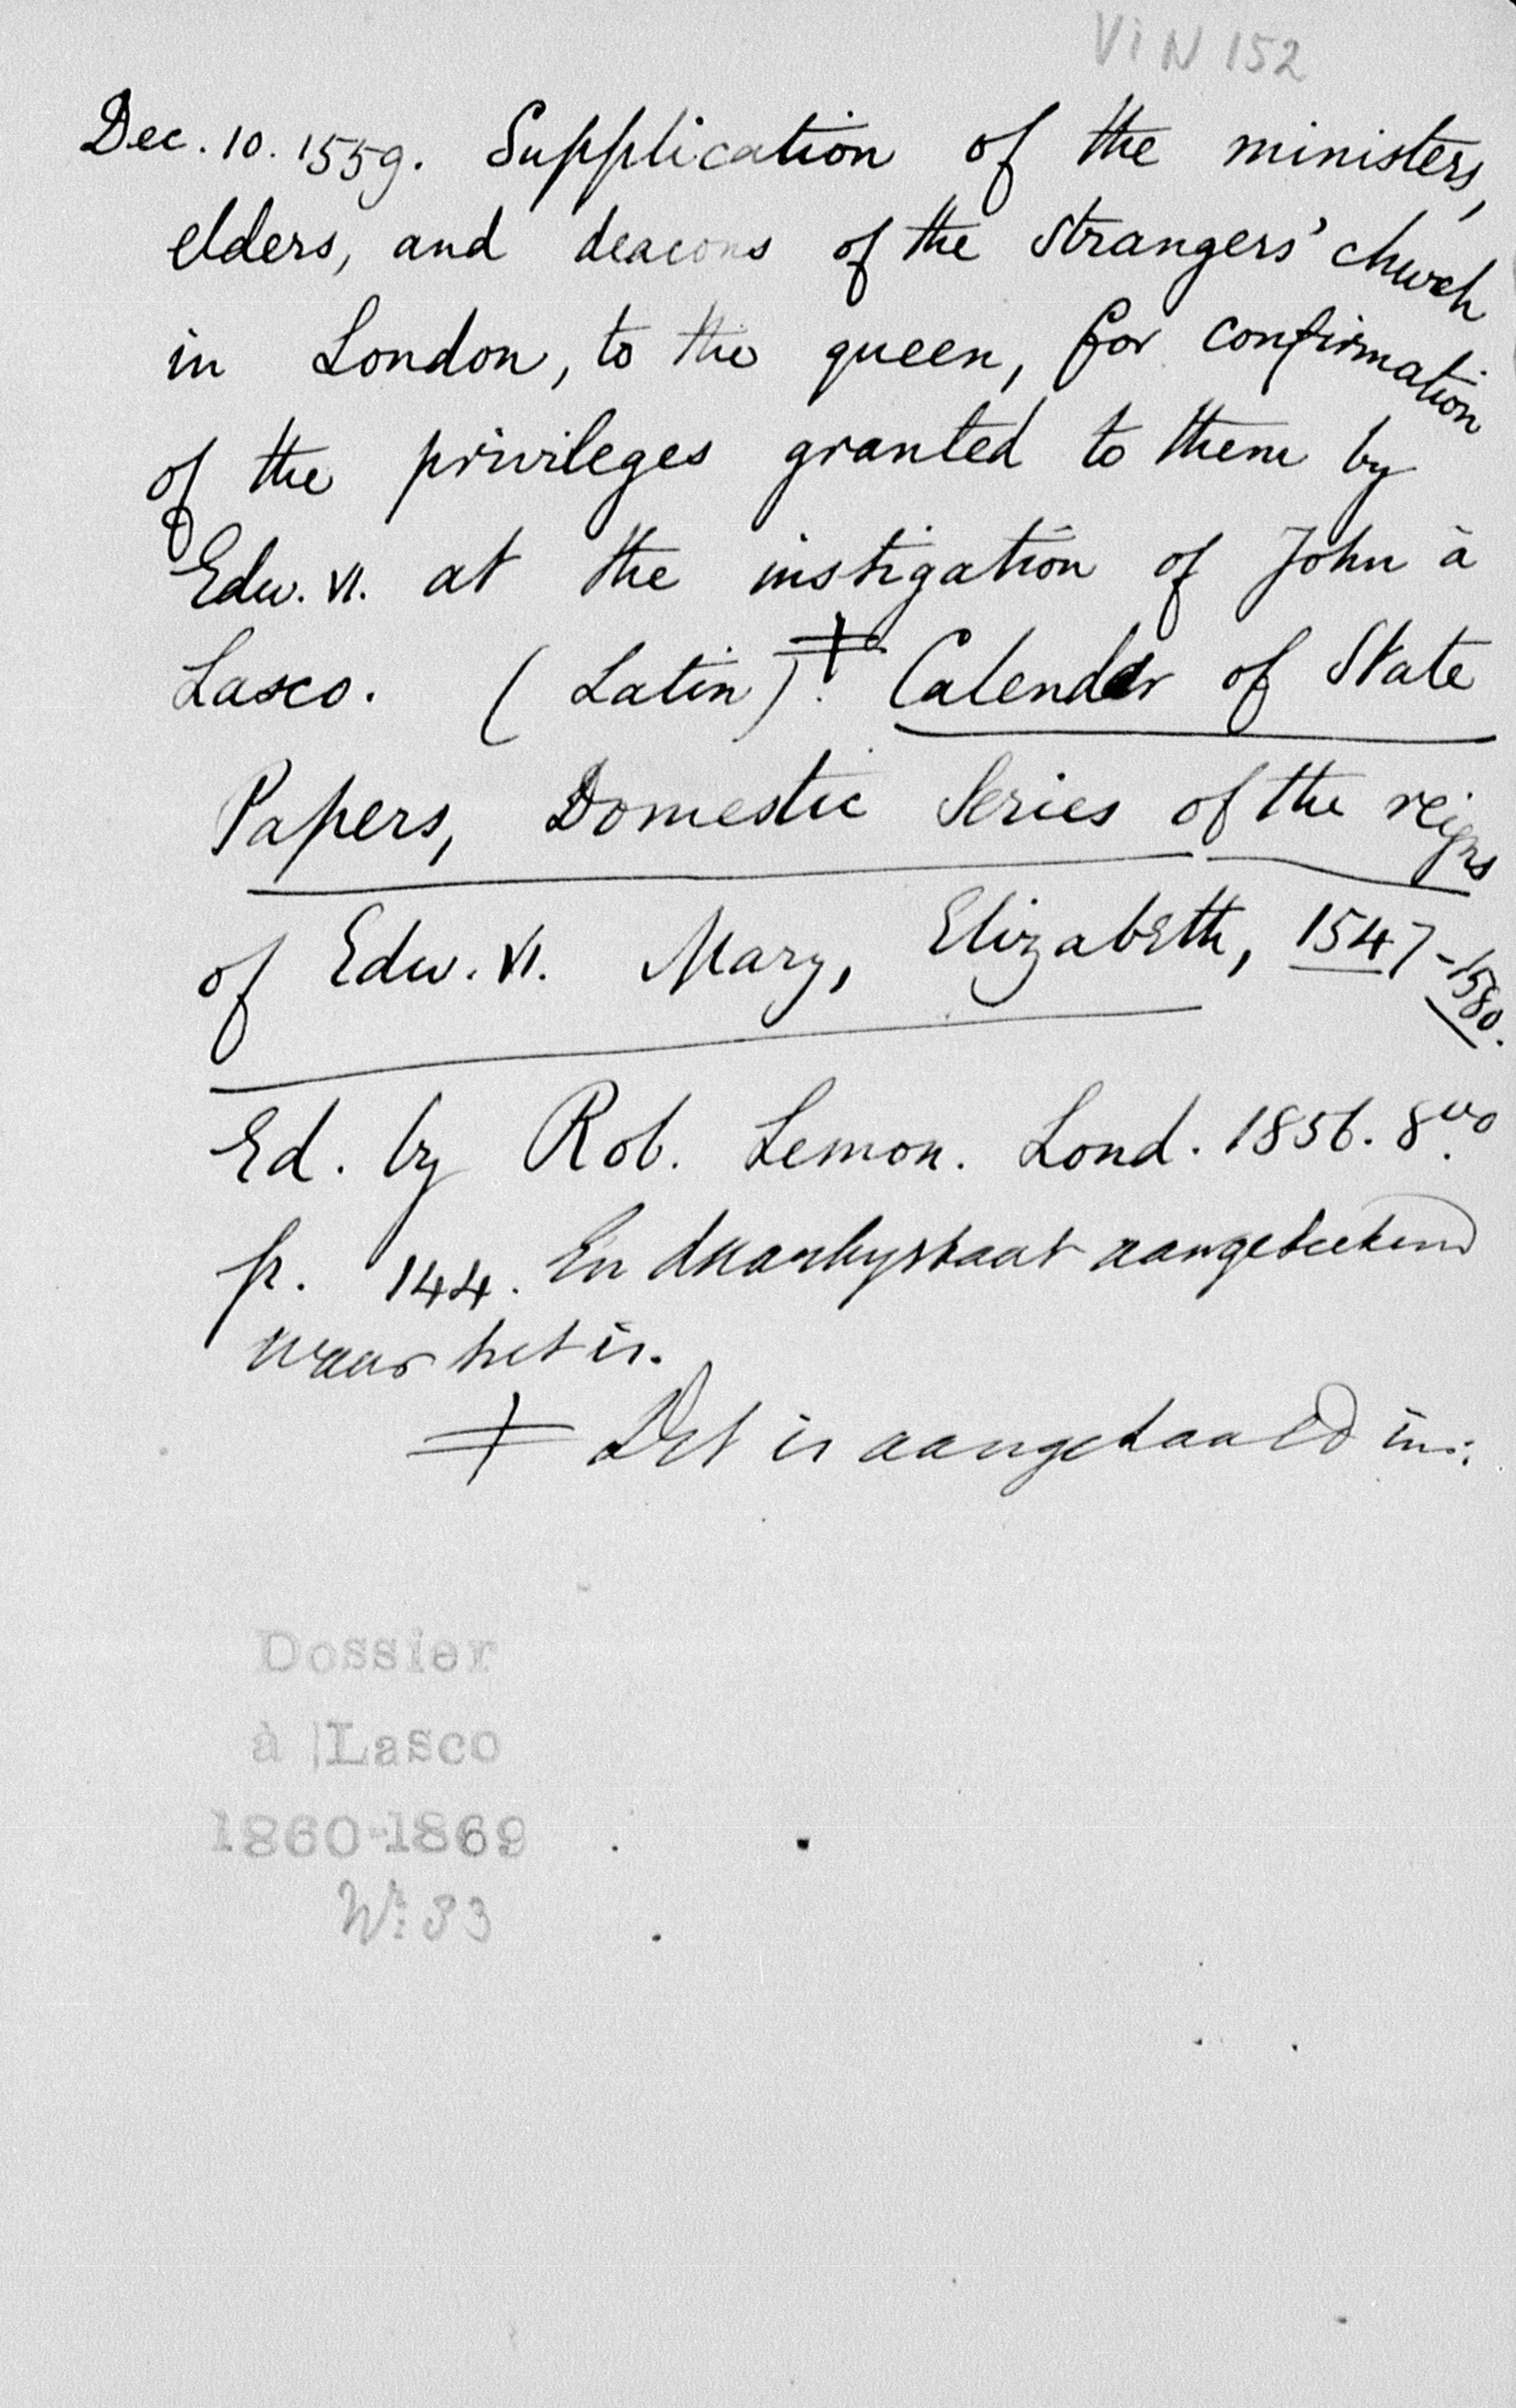 ViN 152
Dec. 10. 1559. Supplication of the ministers,
elders, and deacons of the strangers' church
in London, to the queen, for confirmation
of the privileges granted to them by
Edw. VI. at the instigation of John à
Lasco. (Latin)ǂ. Calendar of State
Papers, Domestic Series of the reigns
of Edw. VI. Mary, Elizabeth, 1547-1580.
Ed. by Rob. Lemon. Lond. 1856. 8vo.
p. 144. En daarbystaat aangeteekend
waar het is.
ǂ Det is aangehaald in:
Dossier
à Lasco
1860-1869
Nr: 83